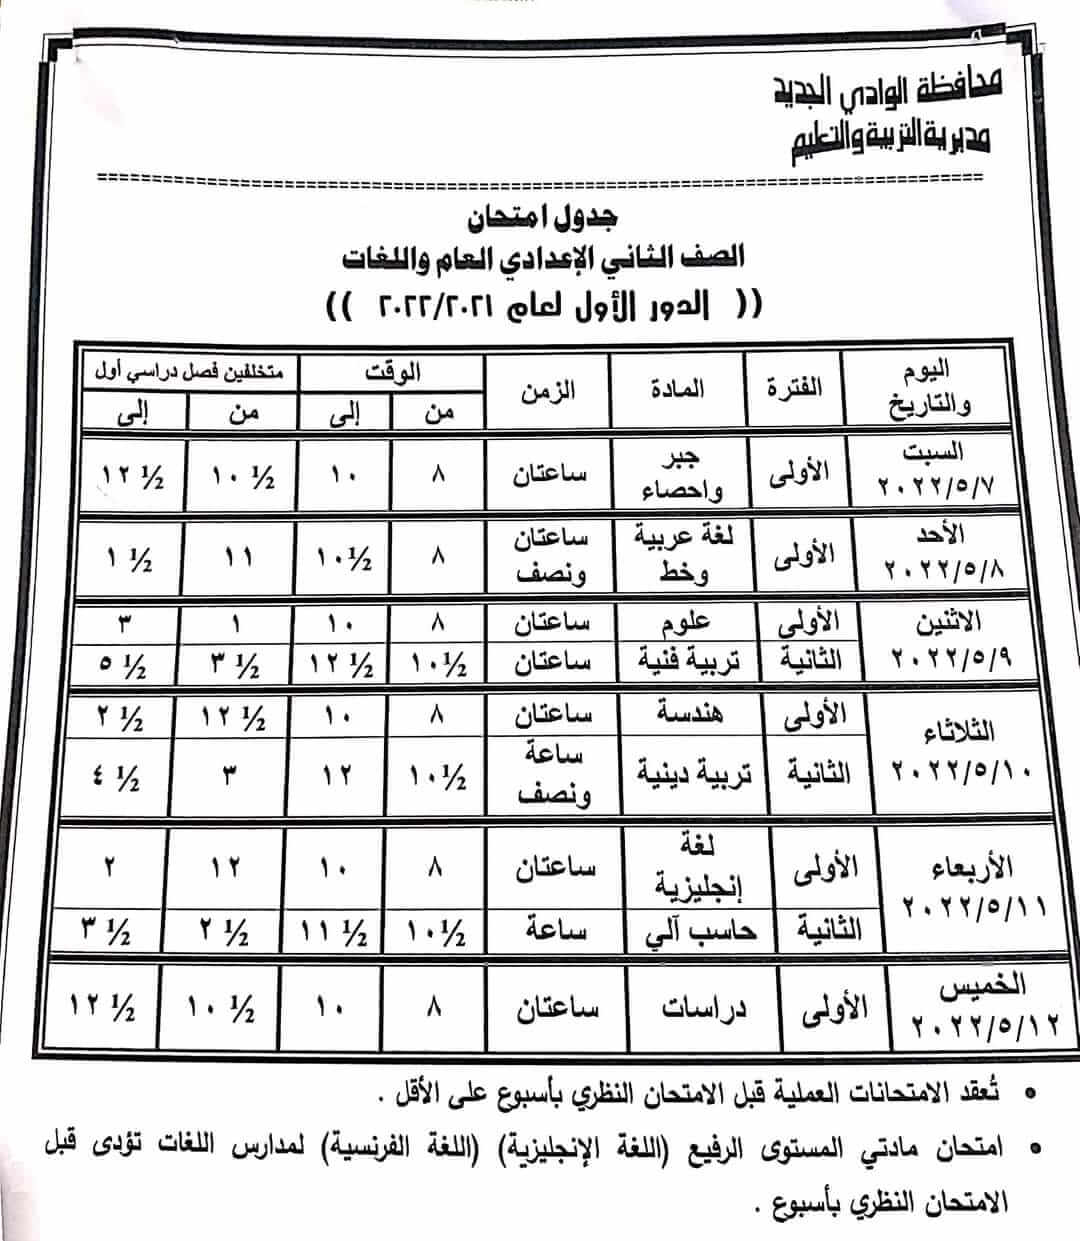 محافظة الوادي الجديد
مديرية التربية والتعليم
جدول امتحان
الصف الثاني الإعدادي العام واللغات
(( الدور الأول لعام ٢٠٢٢/٢٠٢١ ))
اليوم والتاريخ الفترة المادة الزمن الوقت متخلفين فصل دراسي أول
من إلى من إلى
السبت ٢٠٢٢/٥/٧ الأولى جبر واحصاء ساعتان ٨ ١٠ ١٠ ½ ١٢ ½
الأحد ٢٠٢٢/٥/٨ الأولى لغة عربية وخط ساعتان ونصف ٨ ١٠½ ١١ ١ ½
الاثنين ٢٠٢٢/٥/٩ الأولى علوم ساعتان ٨ ١٠ ١ ٣
الثانية تربية فنية ساعتان ١٠½ ١٢ ½ ٣ ½ ٥ ½
الثلاثاء ٢٠٢٢/٥/١٠ الأولى هندسة ساعتان ٨ ١٠ ١٢ ½ ٢ ½
الثانية تربية دينية ساعة ونصف ١٠½ ١٢ ٣ ٤ ½
الأربعاء ٢٠٢٢/٥/١١ الأولى لغة إنجليزية ساعتان ٨ ١٠ ١٢ ٢
الثانية حاسب آلي ساعة ١٠½ ١١ ½ ٢ ½ ٣ ½
الخميس ٢٠٢٢/٥/١٢ الأولى دراسات ساعتان ٨ ١٠ ١٠ ½ ١٢ ½
• تُعقد الامتحانات العملية قبل الامتحان النظري بأسبوع على الأقل .
• امتحان مادتي المستوى الرفيع (اللغة الإنجليزية) (اللغة الفرنسية) لمدارس اللغات تؤدى قبل
الامتحان النظري بأسبوع .